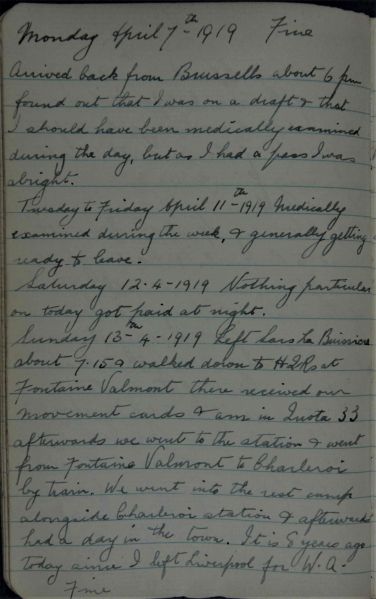 Monday April 7th 1919 Fine
Arrived back from Brussells about 6 pm
found out that I was on a draft & that
I should have been medically examined
during the day, but as I had a pass I was
alright.
Tuesday to Friday April 11th 1919 Medically
examined during the week, & generally getting
ready to leave.
Saturday 12-4-1919 Nothing particular
on today got paid at night.
Sunday 13th-4-1919 Left Sars La Buissiere
about 7.15 a walked down to HQRs at
Fontaine Valmont there received our
movement cards & am in Quota 33
afterwards we went to the station & went
from Fontaine Valmont to Charleroi
by train. We went into the rest camp
alongside Charleroi station & afterwards
had a day in the town. It is 8 years ago
today since I left Liverpool for W.A.
Fine